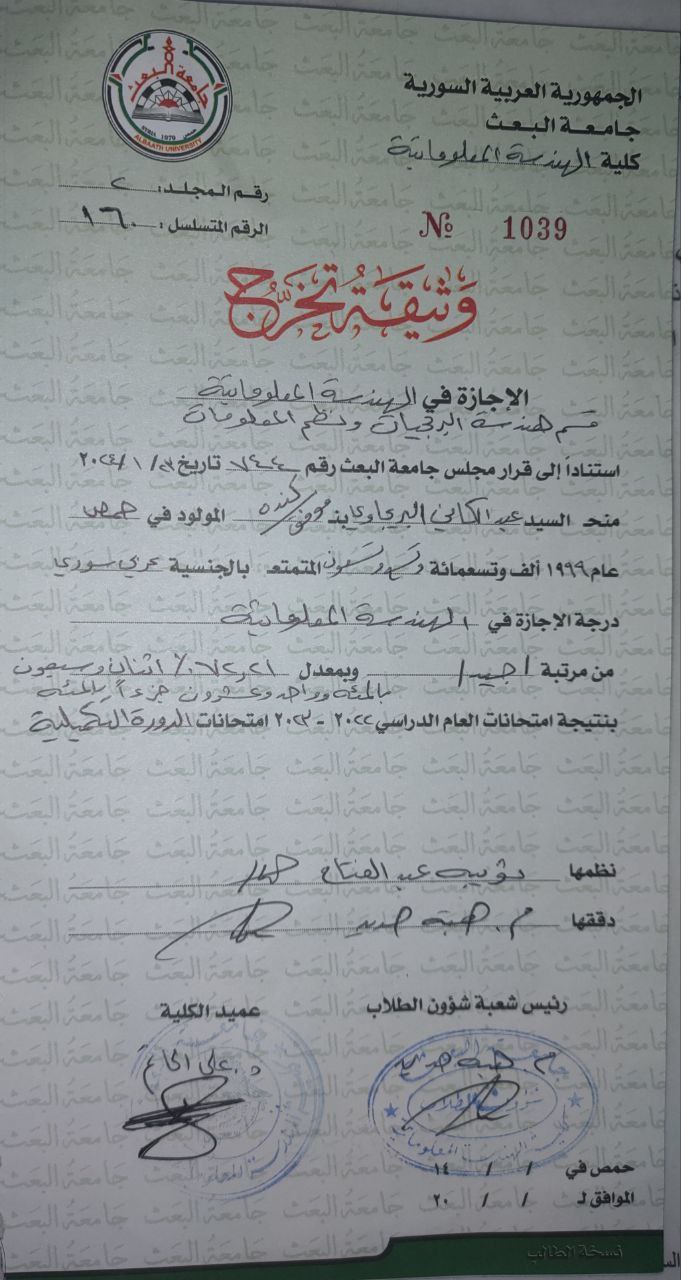 الجمهورية العربية السورية
جامعة البعث
كلية الهندسة المعلوماتية
جامعة البعث
SYRIA 1979 حمص
ALBAATH UNIVERSITY
رقم المجلد: ٢
الرقم المتسلسل: ١٦٠
№ 1039
وثيقة تخرّج
الإجازة في الهندسة المعلوماتية
قسم هندسة البرمجيات ونظم المعلومات
استناداً إلى قرار مجلس جامعة البعث رقم ٧٤٤ تاريخ ٣/١/٢٠٢٤
منح السيد عبد الكافي البريجاوي بن موفق / كنده المولود في حمص
عام ١٩٩٩ ألف وتسعمائة وتسع وتسعون المتمتع بالجنسية عربي سوري
درجة الإجازة في الهندسة المعلوماتية
من مرتبة /جيد/ وبمعدل ٧٢,٢١٪ اثنان وسبعون
بالمئة وواحد وعشرون جزءاً بالمئة
بنتيجة امتحانات العام الدراسي ٢٠٢٢ - ٢٠٢٣ امتحانات الدورة التكميلية
نظمها عبد الفتاح
دققها م. هبة حديد
رئيس شعبة شؤون الطلاب
عميد الكلية
م. هبة حديد
د. علي الحاج
حمص في / / ١٤
الموافق لـ / / ٢٠
نسخة الطالب